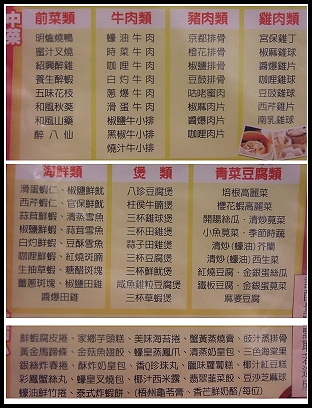 中菜
前菜類 牛肉類 豬肉類 雞肉類
明爐燒鴨 蠔油牛肉 京都排骨 宮保雞丁
蜜汁叉燒 時菜牛肉 橙花排骨 椒麻雞球
紹興醉雞 咖哩牛肉 椒鹽排骨 醬爆雞片
養生醉蝦 白灼牛肉 豆豉排骨 咖哩雞球
五味花枝 蔥爆牛肉 咕咾蜜肉 豆豉雞球
和風秋葵 滑蛋牛肉 椒麻肉片 西芹雞片
和風山藥 椒鹽牛小排 醬爆肉片 南乳雞球
醉八仙 黑椒牛小排 咖哩肉片
燒汁牛小排
海鮮類 煲類 青菜豆腐類
滑蛋蝦仁、椒鹽鮮魷 八珍豆腐煲 培根高麗菜
西芹蝦仁、官保鮮魷 柱侯牛腩煲 櫻花蝦高麗菜
蒜茸鮮蝦、清蒸雪魚 三杯雞球煲 開陽絲瓜、清炒莧菜
椒鹽鮮蝦、蒜茸雪魚 三杯田雞煲 小魚莧菜、季節時蔬
白灼鮮蝦、豆酥雪魚 蒜子田雞煲 清炒(蠔油)芥蘭
咖哩鮮蝦、紅燒斑腩 三杯中卷煲 清炒(蠔油)西生菜
生抽草蝦、糖醋斑塊 三杯鮮魷煲 紅燒豆腐、金銀蛋絲瓜
薑蔥斑塊、椒鹽田雞 咸魚雞粒豆腐煲 鐵板豆腐、金銀蛋莧菜
醬爆田雞 三杯草蝦煲 麻婆豆腐
鮮蝦腐皮捲、家鄉芋頭糕、美味海苔捲、蟹黃蒸燒賣、豉汁蒸排骨
黃金馬蹄條、金菇魚翅餃、蠔皇蒸鳳爪、清蒸奶皇包、三色海棠果
銀絲炸春捲、酥炸奶皇包、香Q珍珠丸、臘味蘿蔔糕、椰汁紅豆糕
彩鳳蟹絲丸、蠔皇叉燒包、椰汁西米露、翡翠韮菜餃、豆沙芝麻球
蠔油鮮竹捲、泰式炸蝦餅、(梧州龜苓膏、香芒鮮奶酪/每位)